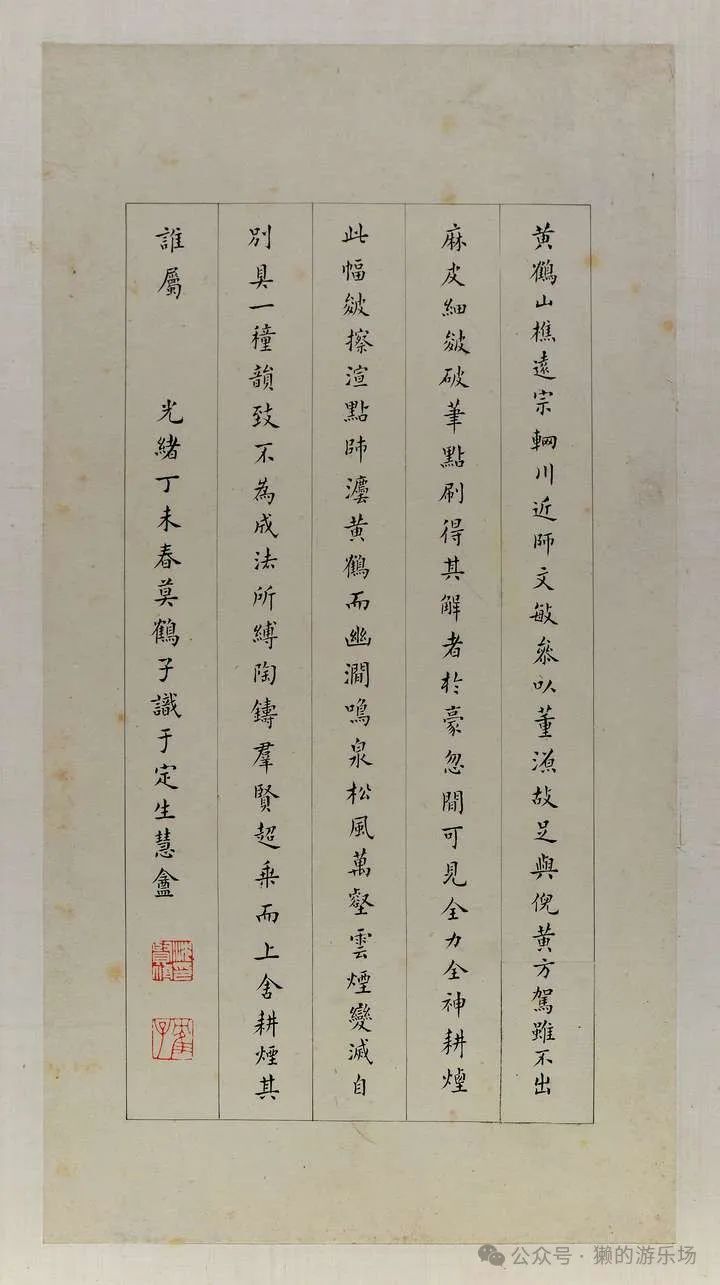 黄鶴山樵遠宗輞川近師文敏叅以董源故足與倪黄方駕雖不出
麻皮細皴破筆點刷得其解者於豪忽間可見全力全神耕煙
此幅皴擦渲點師灋黄鶴而幽澗鳴泉松風萬壑雲煙變滅自
別具一種韻致不為成法所縛陶鑄羣賢超乘而上舍耕煙其
誰屬　光緒丁未春莫鶴子識于定生慧盦
公众号 · 獭的游乐场